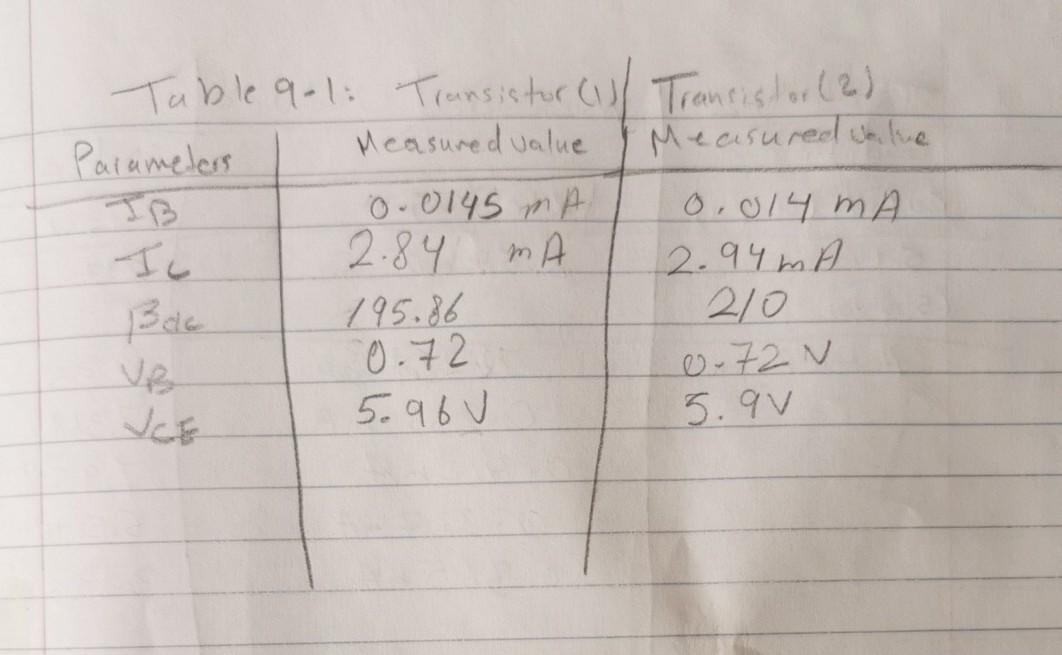 Table 9-1: Transistor (1) Transistor (2)
Parameters Measured value Measured value
IB 0.0145 mA 0.014 mA
IC 2.84 mA 2.94 mA
βdc 195.86 210
VB 0.72 0.72 V
VCE 5.96 V 5.9 V